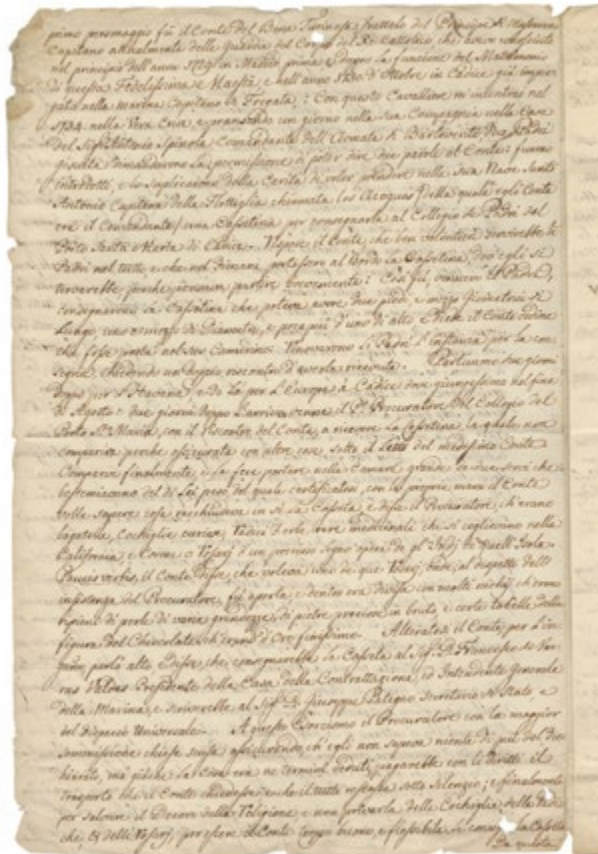 primo personaggio fù il Conte del Bene Torinese fratello del Principe di Masserano
Capitano attualmente delle Guardie del Corpo del Re Cattolico, che
nel principio dell'anno 1729 in Madrid prima e dopo la funzione del Matrimonio
di questa Fedelissima Maestà, e nell'anno 1730 d'Ottobre in Cadice già
gato nella marina Capitano di Fregata; Con questo Cavalliere m'incontrai nel
1734 nella Vera Cruz, e pranzando un giorno nella sua Compagnia nella Casa
del Sigr Antonio Spinola Comandante dell'Armata di Barlovento
la permissione di poter dire due parole al Conte: furono
introdotti, e lo supplicarono della Carità di voler prendere nella sua Nave Santo
Antonio Capitana della Flottiglia chiamata los Azogues (della quale egli Conte
ere il Comandante) una Cassettina per consegnarla al Collegio de Padri del
Porto Santa Maria di Cadice. Rispose il Conte, che ben volentieri servirebbe li
Padri nel tutto, e che nel dimani portassero al Bordo la Cassettina, dove egli si
troverebbe, perche pensava partire brevemente: Così fù, vennero il Padri,
consegnarono la Cassettina che poteva avere due piedi, e mezzo
Lungo, uno e mezzo di Diametro, e poca più d'uno di alto Diede il Conte ordine
che fosse posta nel suo Camerino: Rinovarono li Padri l'instanza per la con
segna, chiedendo un doppio riscontro d'averla ricevuta. Partimmo due giorni
doppo per l'Havana, e da là per l'Europa à Cadice dove giungessimo nel fine
di Agosto: due giorni doppo l'arrivo venne il P. Procuratore del Collegio del
Porto Sta Maria, con il riscontro del Conte, a ricevere la Cassettina, la quale non
compariva perche assicurata con altre cose sotto il Letto del medesimo Conte
Comparve finalmente, e la fece portare nella Camera grande da due servi che
bestemiavano del di Lei peso, del quale certificatosi con le proprie mani il Conte
volle sapere cosa racchiudeva in sè la Cassetta, e disse il Procuratore, ch'erano
bagatelle, Cochiglie curiose, Radici d'erbe rare medicinali che si coglievano nella
California, e Cocos, o Vasarj d'un prezioso legno opera de gl'Indj de quell'Isola.
Paucis verbis, il Conte disse, che voleva uno di que' Vasarj, onde, al dispetto dell'
insistenza del Procuratore, fù aperta, e dentro era divisa con molti nichij ch'erano
ripieni di perle di varia grandezza, di pietre preziose in bruto, e certe tabelle della
figura del Chiocolate, ch'erano d'Oro finissimo. Alteratosi il Conte, per l'in
ganno, parlò alto Disse che consegnarebbe la Cassetta al Sigr D. Francesco de Var
ras Valdes Presidente della Casa della Contrattazione, ed Intendente Generale
della Marina, e scriverebbe al Sigr D. Giuseppe Patigno Secretario di Stato e
del Dispacio Universale. A questo Esorcismo il Procuratore con la maggior
sommissione chiese scusa assicurando, ch'egli non sapeva niente di più del
chiarito, ma poiche la cosa era ne' termini veduti, pagarebbe con li diritti il
trasporto che il Conte chiedesse, e che il tutto restasse sotto silenzio; e finalmente
per salvare il Decoro della Religione, e una poverta delle Cochiglie, delle Radi
che, e delli Vasarj, per essere il Conte troppo buono, e flessibile la Cassetta
Da questa